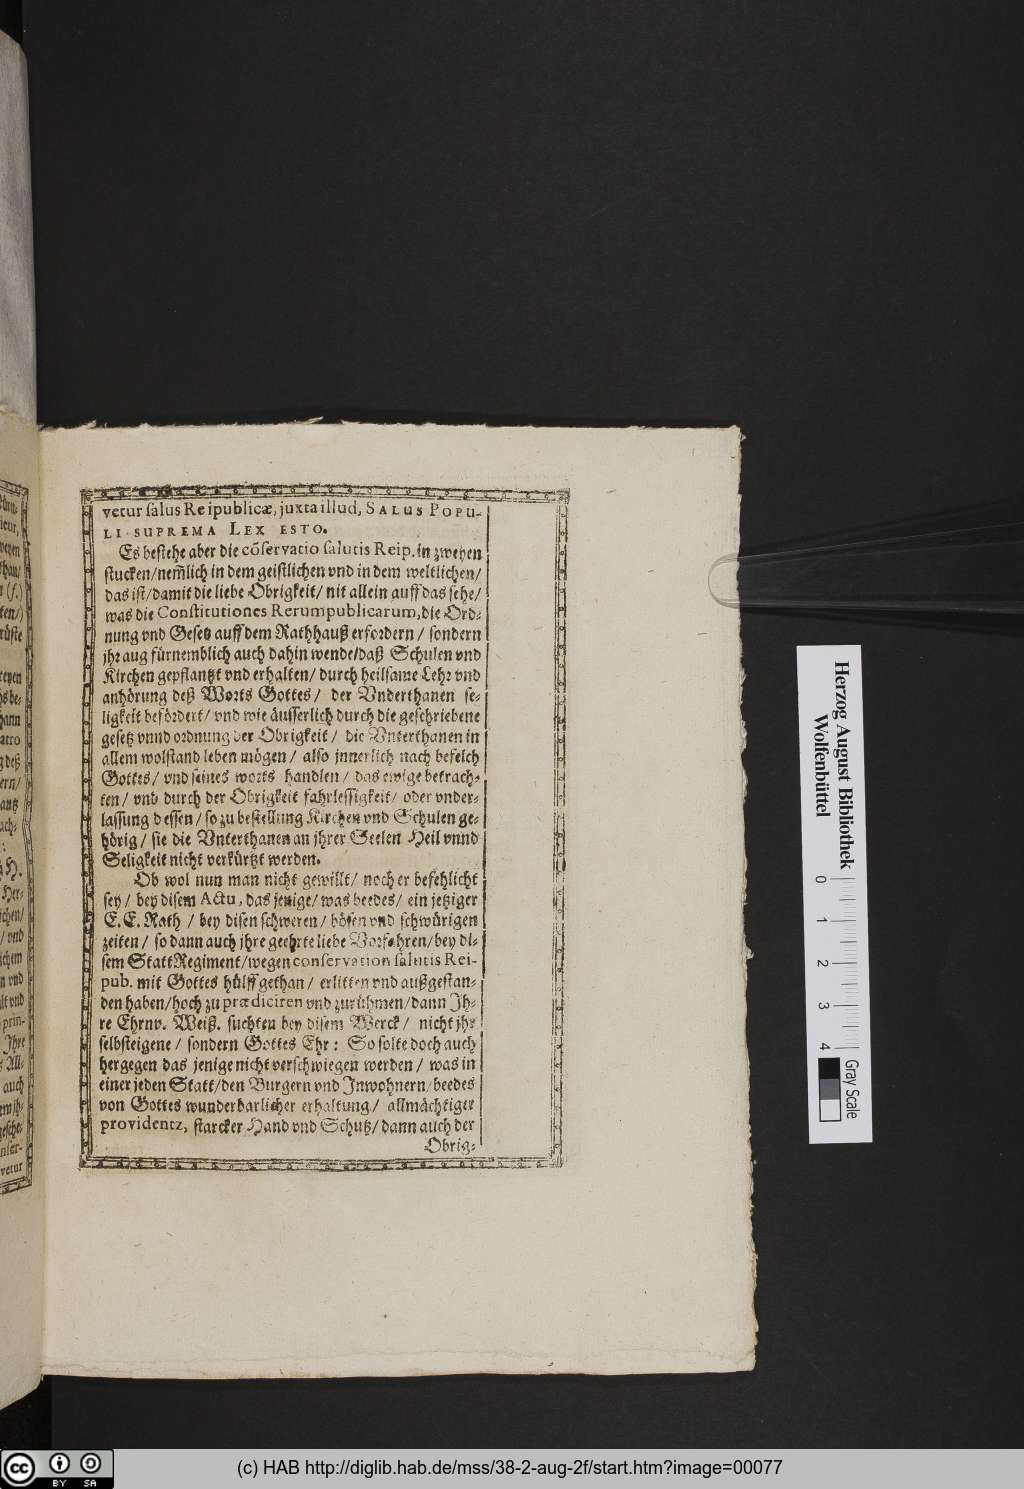 vetur salus Reipublicæ, juxta illud, SALUS POPU-
LI SUPREMA LEX ESTO.
Es bestehe aber die cōservatio salutis Reip. in zweyen
stucken/nem̃lich in dem geistlichen vnd in dem weltlichen/
das ist/damit die liebe Obrigkeit/ nit allein auff das sehe/
was die Constitutiones Rerumpublicarum, die Ord-
nung vnd Gesetz auff dem Rathhauß erfordern / sondern
jhr aug fürnemblich auch dahin wende/daß Schulen vnd
Kirchen gepflantzt vnd erhalten/ durch heilsame Lehr vnd
anhörung deß Worts Gottes/ der Vnderthanen se-
ligkeit befördert/ vnd wie äusserlich durch die geschriebene
gesetz vnnd ordnung der Obrigkeit / die Vnterthanen in
allem wolstand leben mögen / also jnnerlich nach befelch
Gottes/ vnd seines worts handlen / das ewige betrach-
ten/ vnd durch der Obrigkeit fahrlessigkeit/ oder vnder-
lassung dessen / so zu bestellung Kirchen vnd Schulen ge-
hörig / sie die Vnterthanen an jhrer Seelen Heil vnnd
Seligkeit nicht verkürtzt werden.
Ob wol nun man nicht gewillt/ noch er befehlicht
sey / bey disem Actu, das jenige/ was beedes/ ein jetziger
E. E. Rath / bey disen schweren / bösen vnd schwürigen
zeiten / so dann auch jhre geehrte liebe Vorfahren/bey di-
sem StattRegiment/wegen conservation salutis Rei-
pub. mit Gottes hülff gethan / erlitten vnd außgestan-
den haben/hoch zu prædiciren vnd zurühmen/dann Jh-
re Ehrnv. Weiß. suchten bey disem Werck / nicht jhr
selbsteigene / sondern Gottes Ehr : So solte doch auch
hergegen das jenige nicht verschwiegen werden / was in
einer jeden Statt/den Burgern vnd Jnwohnern/beedes
von Gottes wunderbarlicher erhaltung / allmächtiger
providentz, starcker Hand vnd Schutz/ dann auch der
Obrig-
Herzog August Bibliothek
Wolfenbüttel
0 1 2 3 4
Gray Scale
cc BY SA
(c) HAB http://diglib.hab.de/mss/38-2-aug-2f/start.htm?image=00077